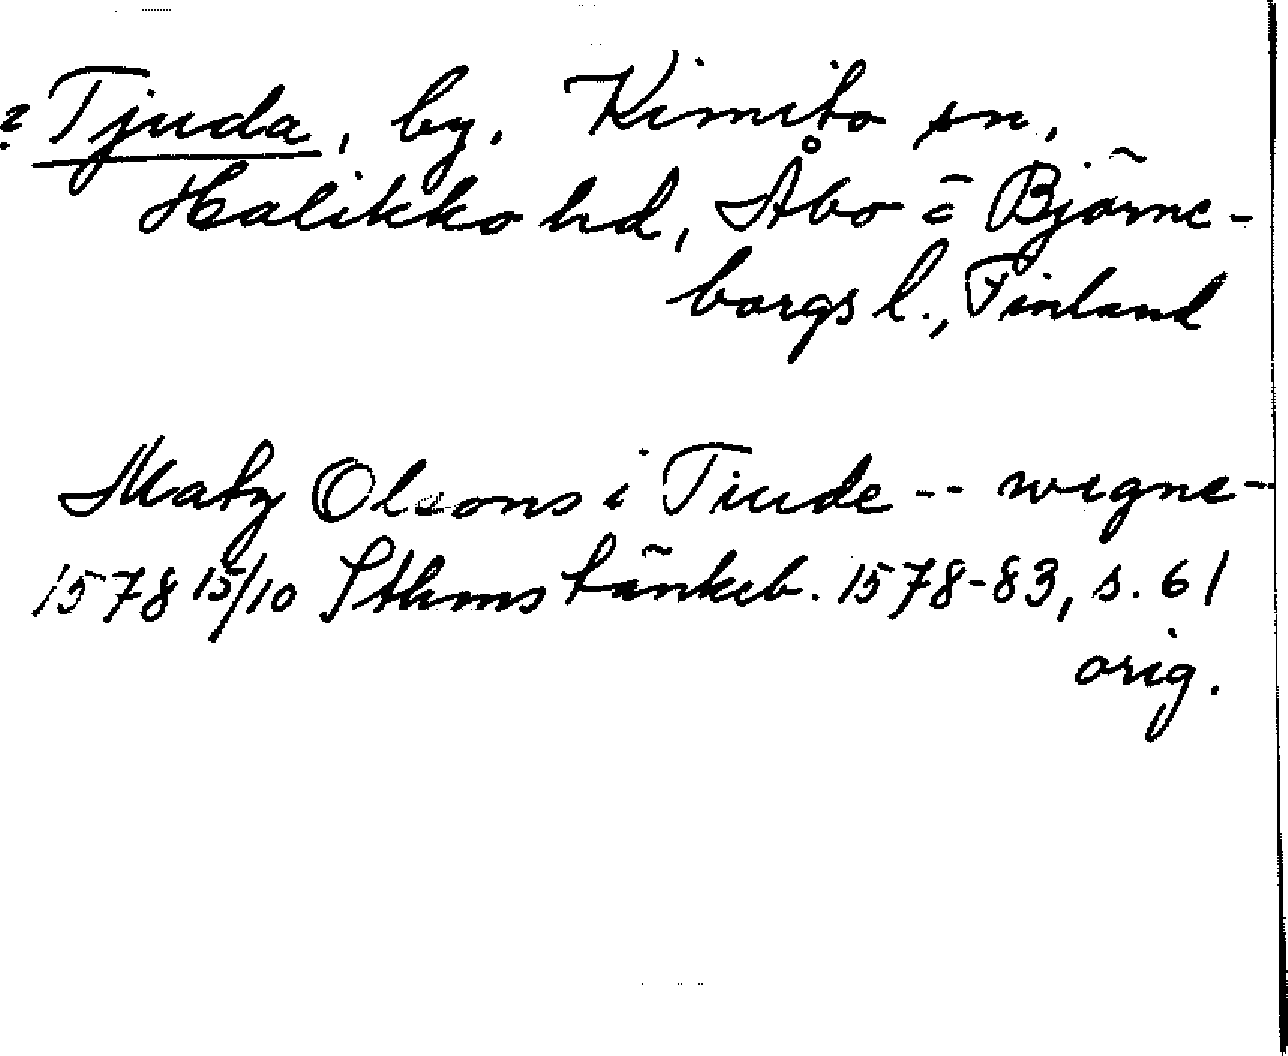 ? Tjuda, by, Kimito sn,
Halikko hd, Åbo o Björne-
borgs l., Finland
Matz Olsons i Tiude -- wegne--
1578 15/10 Sthms tänkeb. 1578-83, s. 61
orig.